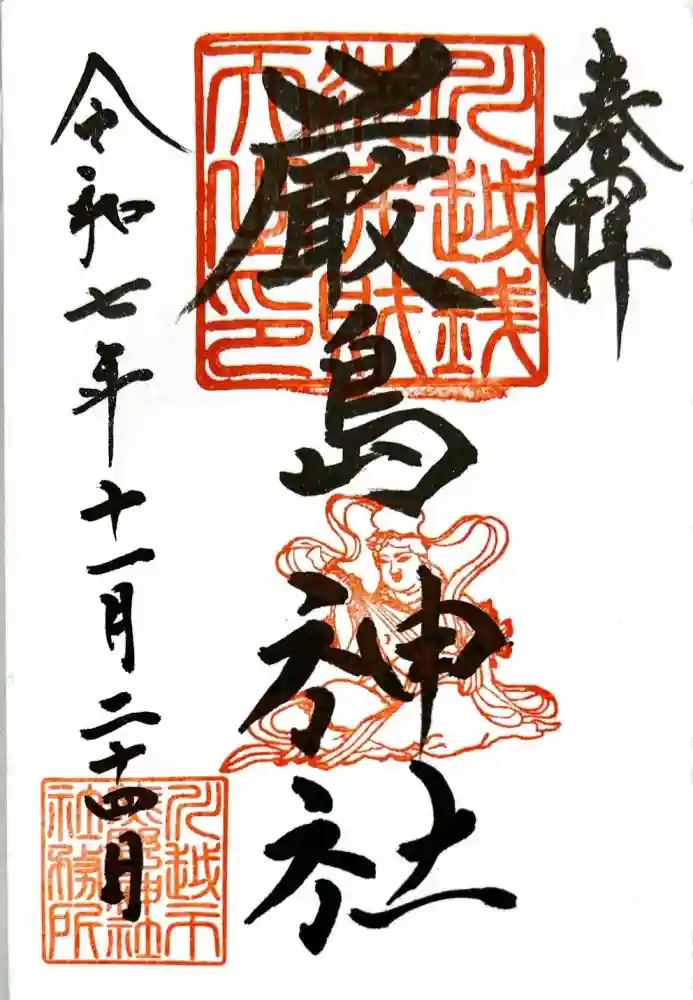 奉拝
川越銭
天之印
厳島神社
令和七年十一月二十四日
川越市
熊野神社
社務所